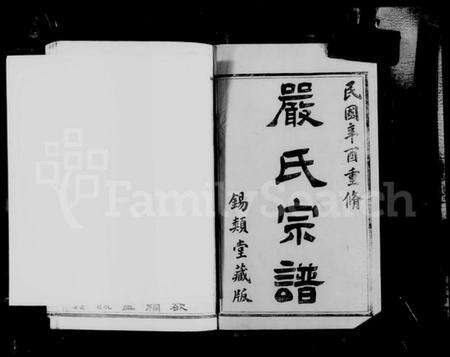 民國辛酉重脩
嚴氏宗譜
錫類堂藏版
FamilySearch